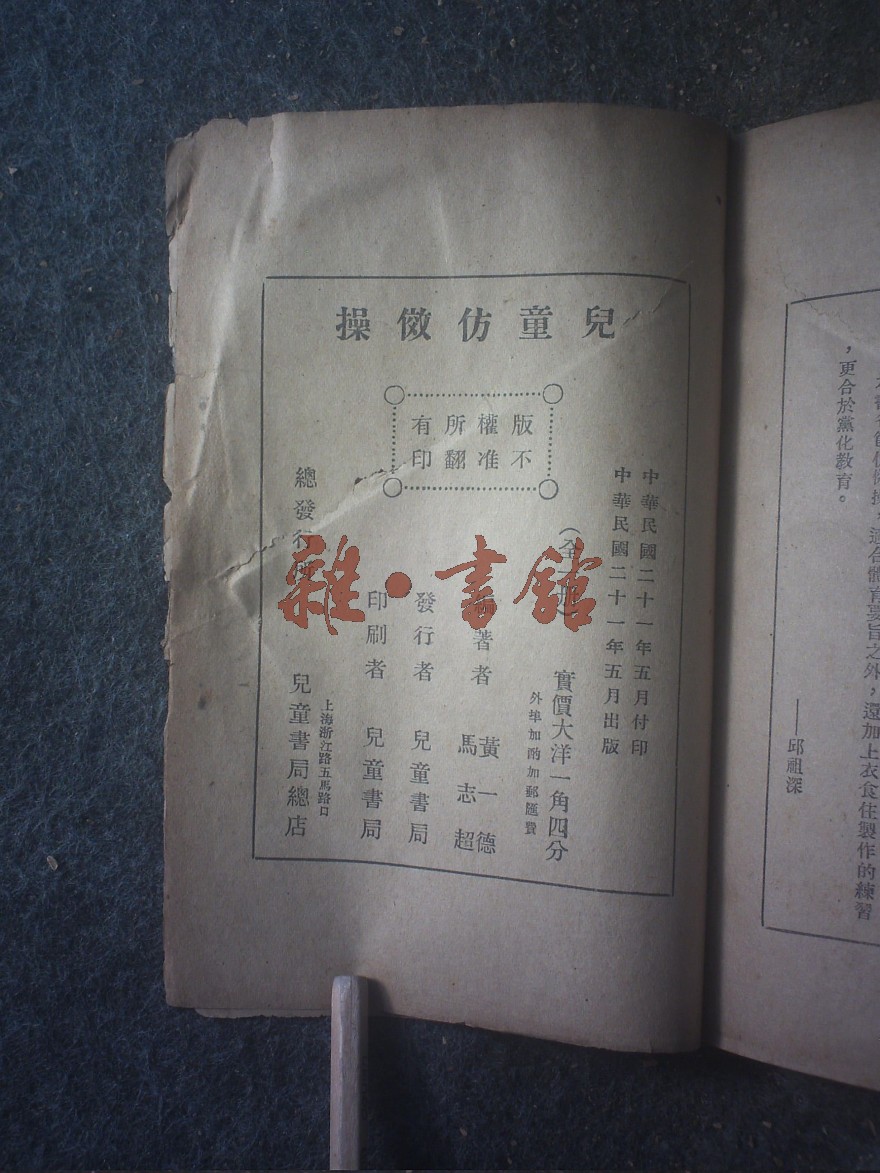 兒童仿傚操
版權所有
不准翻印
中華民國二十一年五月付印
中華民國二十一年五月出版
(全一冊)
實價大洋一角四分
外埠加酌加郵匯費
著者
黃一德
馬志超
發行者 兒童書局
印刷者 兒童書局
總發行所
上海浙江路五馬路口
兒童書局總店
雜·書館
適合體育要旨之外，還加上衣食住製作的練習
，更合於黨化教育。
——邱祖深